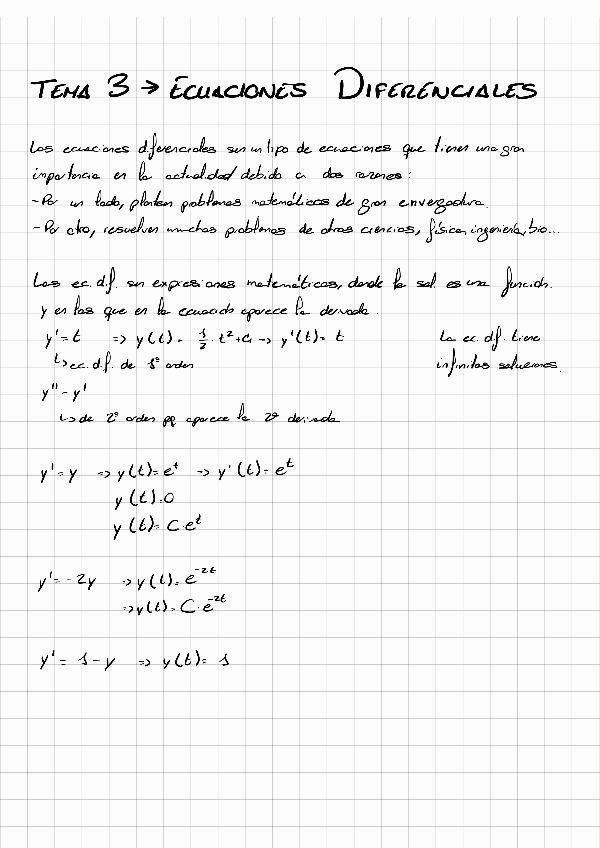 TEMA 3 → ECUACIONES DIFERENCIALES
Las ecuaciones diferenciales son un tipo de ecuaciones que tienen una gran
importancia en la actualidad debido a dos razones:
- Por un lado, plantean problemas matemáticos de gran envergadura.
- Por otro, resuelven muchos problemas de otras ciencias, física, ingeniería, bio...
Las ec. dif. son expresiones matemáticas, donde la sol. es una función.
y en las que en la ecuación aparece la derivada.
y' = t => y(t) = 1/2 · t² + C → y'(t) = t La ec. dif. tiene
↳ ec. d.f. de 1º orden infinitas soluciones.
y'' = y'
↳ de 2º orden pq aparece la 2ª derivada
y' = y => y(t) = e^t → y'(t) = e^t
y(t) = 0
y(t) = C·e^t
y' = -2y => y(t) = e^-2t
=> y(t) = C·e^-2t
y' = 1 - y => y(t) = 1